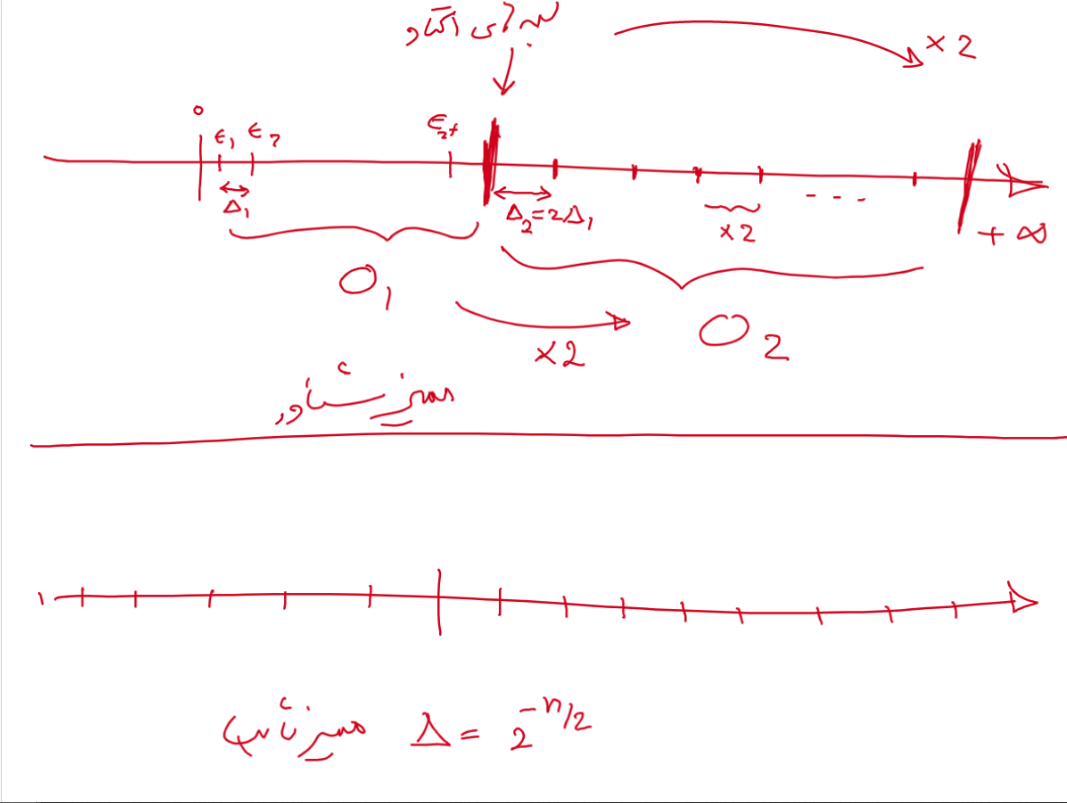 برای اکتاو
×2
0
ϵ₁ ϵ₂ ϵ₂ₜ
Δ₁ Δ₂=2Δ₁ ×2 - - - +∞
O₁ ×2 O₂
ممیز شناور
ممیز ثابت Δ = 2^{-n/2}